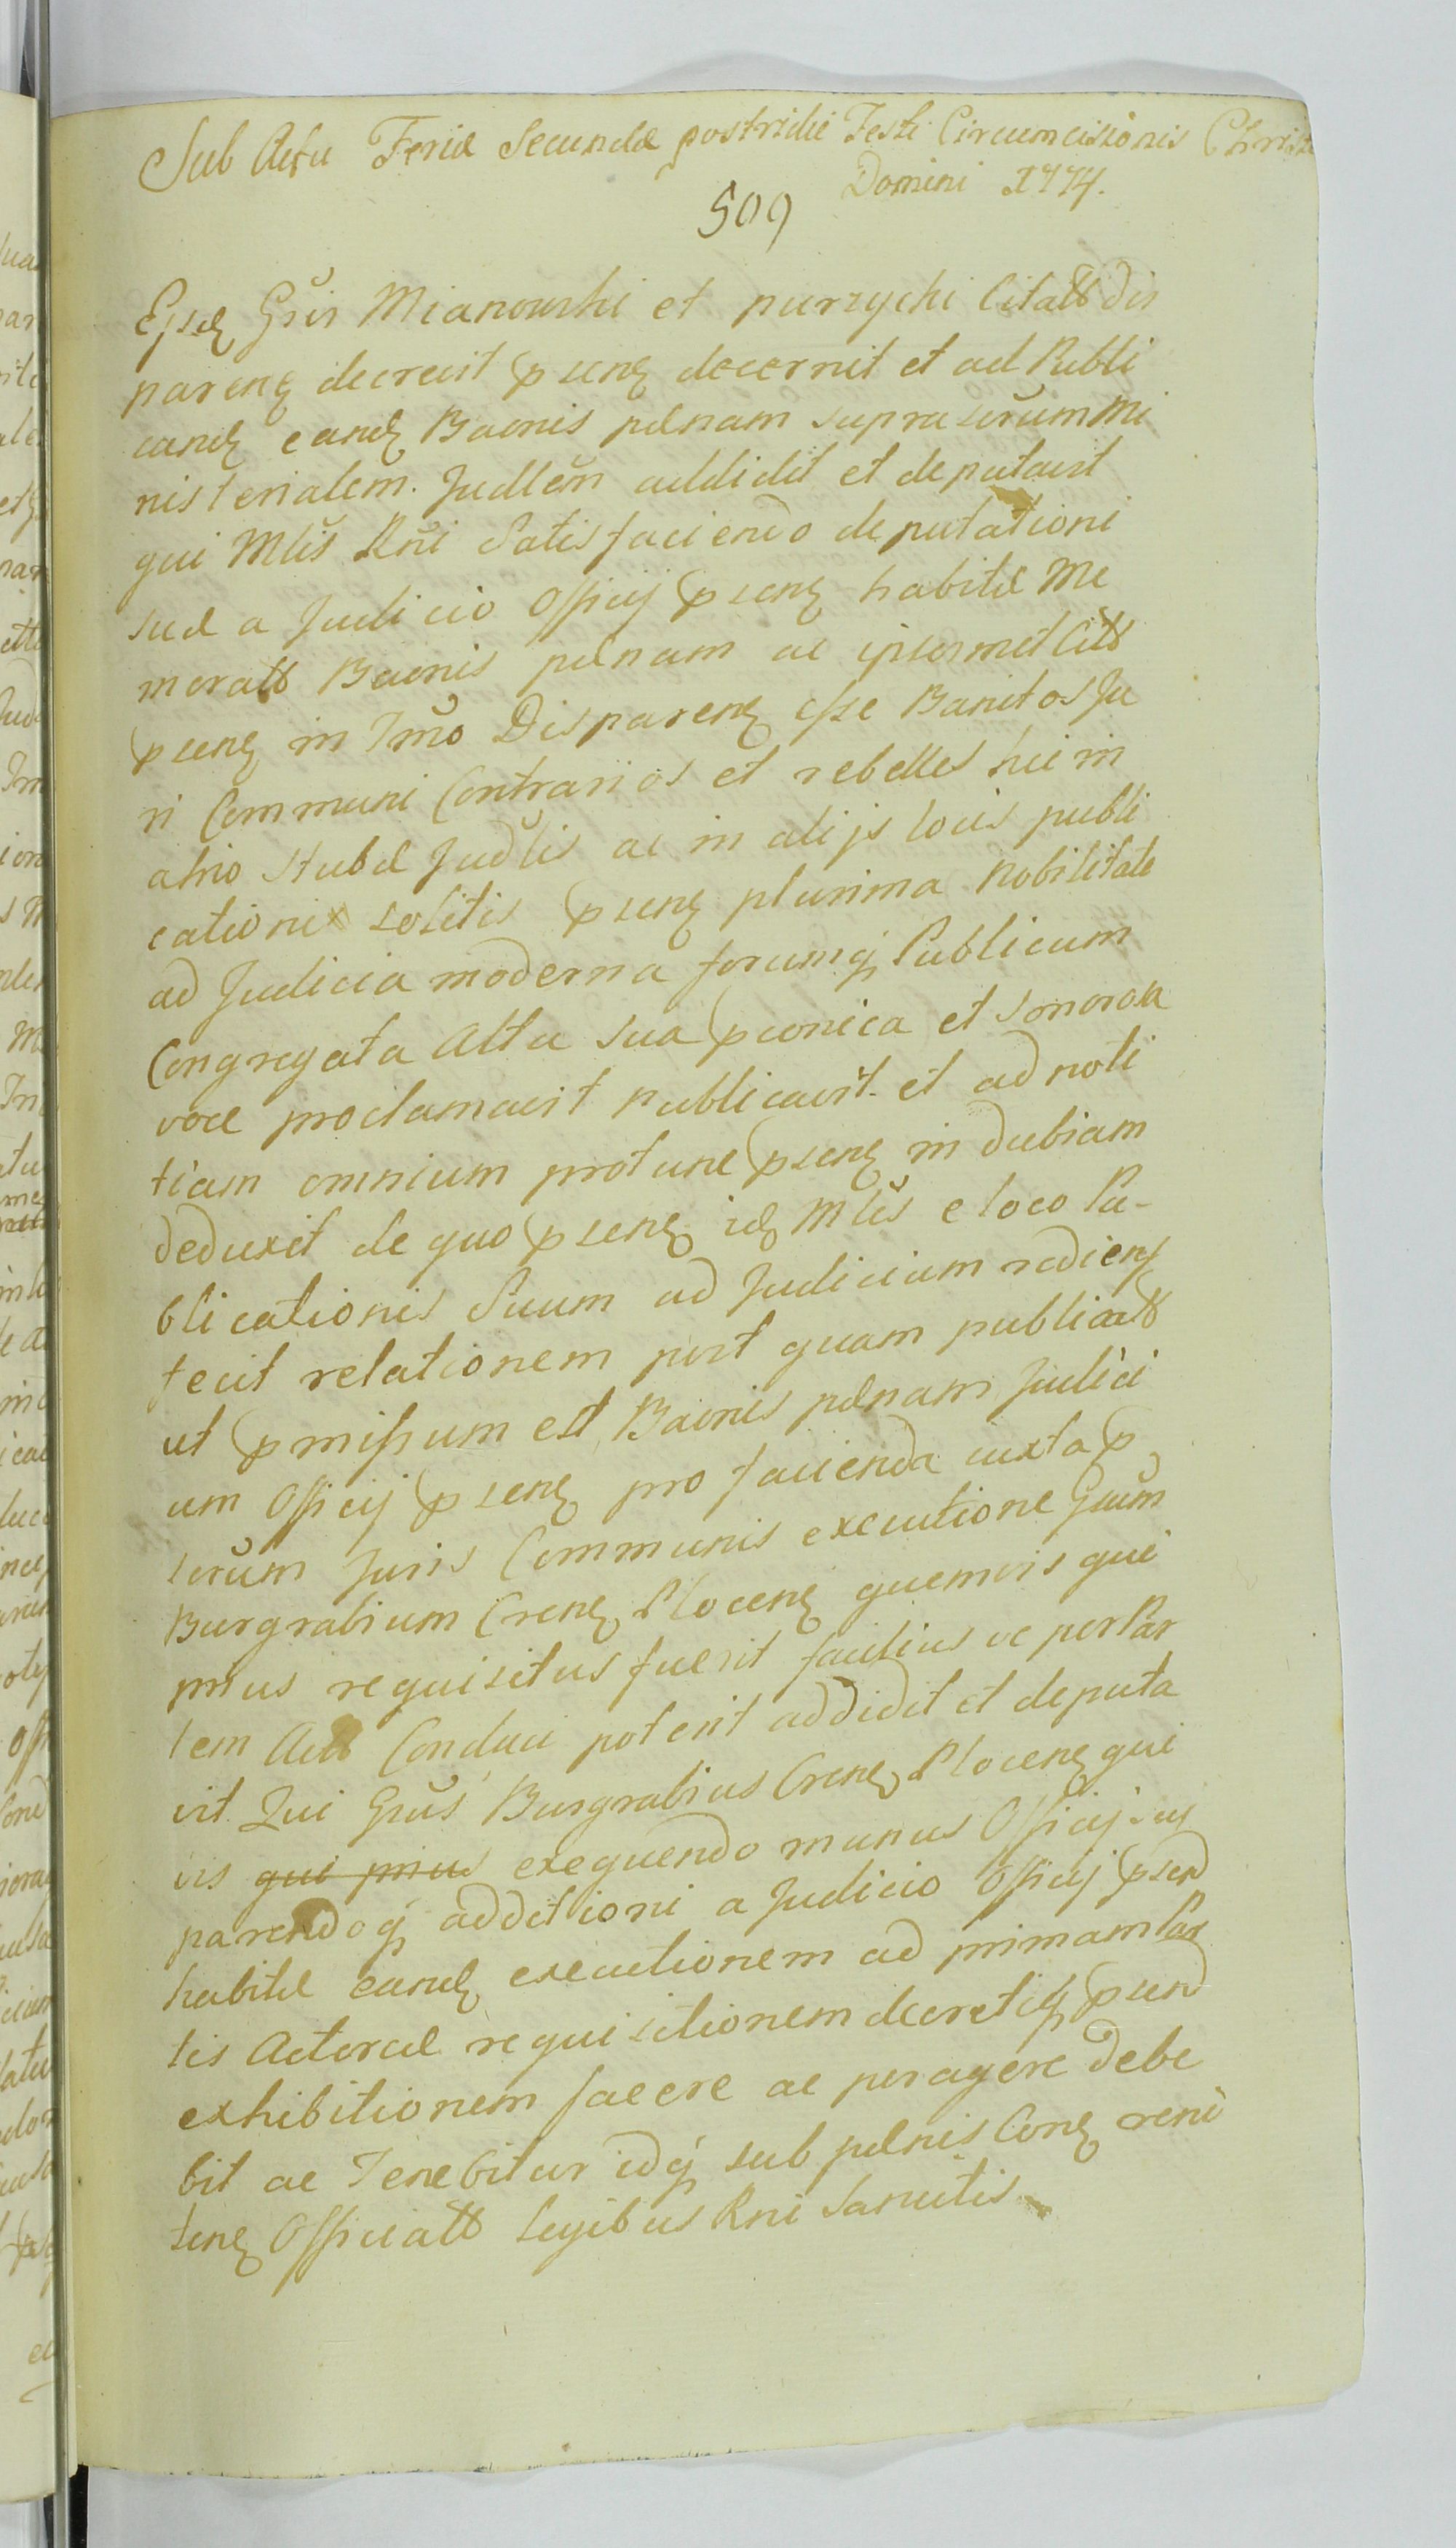 Sub Actu Feriæ Secundæ postridie Festi Circumcisionis Christi
Domini 1774.
509
Ejsdę Gr̃is Mianowski et purzycki Citatt Dis
parenę decrevit p̄senę decernit et ad Publi
candę eandę Baonis pænam suprascr̃um Mi
nisterialem. Judlem̃ addidit et deputavit
qui Mlis̃ Rñi Satisfaciendo deputationi
suæ a Judicio Officij p̄senę habitæ Me
moratt Baonis pænam ac ipsosmet Citt
p̄senę in Tm̃o Disparenę esse Banitos Ju
ri Communi Contrarios et rebelles hic in
atrio Stubæ Jud̃lis ac in alijs locis publi
cationi solitis p̄senę plurima Nobilitate
ad Judicia moderna forumq̨ Publicum
Congregata Alta sua p̄conica et Sonorosa
voce proclamavit publicavit et ad noti
tiam omnium protunc p̄senę in dubiam
deduxit de quo p̄senę idę Mlis̃ e loco Pu-
blicationis Suum ad Judicium rediens
fecit relationem post quam publicatt
ut p̄missum est Baonis pænam Judici
um Officij p̄senę pro facienda iuxta p̄
scr̃um Juris Communis executione Gr̃um
Burgrabium Crenę Plocenę quemvis qui
prius requisitus fuerit facilius ve per Par
tem Act Conduci poterit addidit et deputa
vit Qui Gr̃us Burgrabius Crenę Plocenę qui
vis qui prius exequendo munus Officij sui
parendoq̨ additioni a Judicio Officij p̄sen
habitæ eandę executionem ad primam Par
tis Actoreæ requisitionem decretiq̨ p̄sen
exhibitionem facere ac peragere debe
bit ac Tenebitur idq̨ sub pænis Conę reni
tenę Officiatt legibus Rni Sancitis